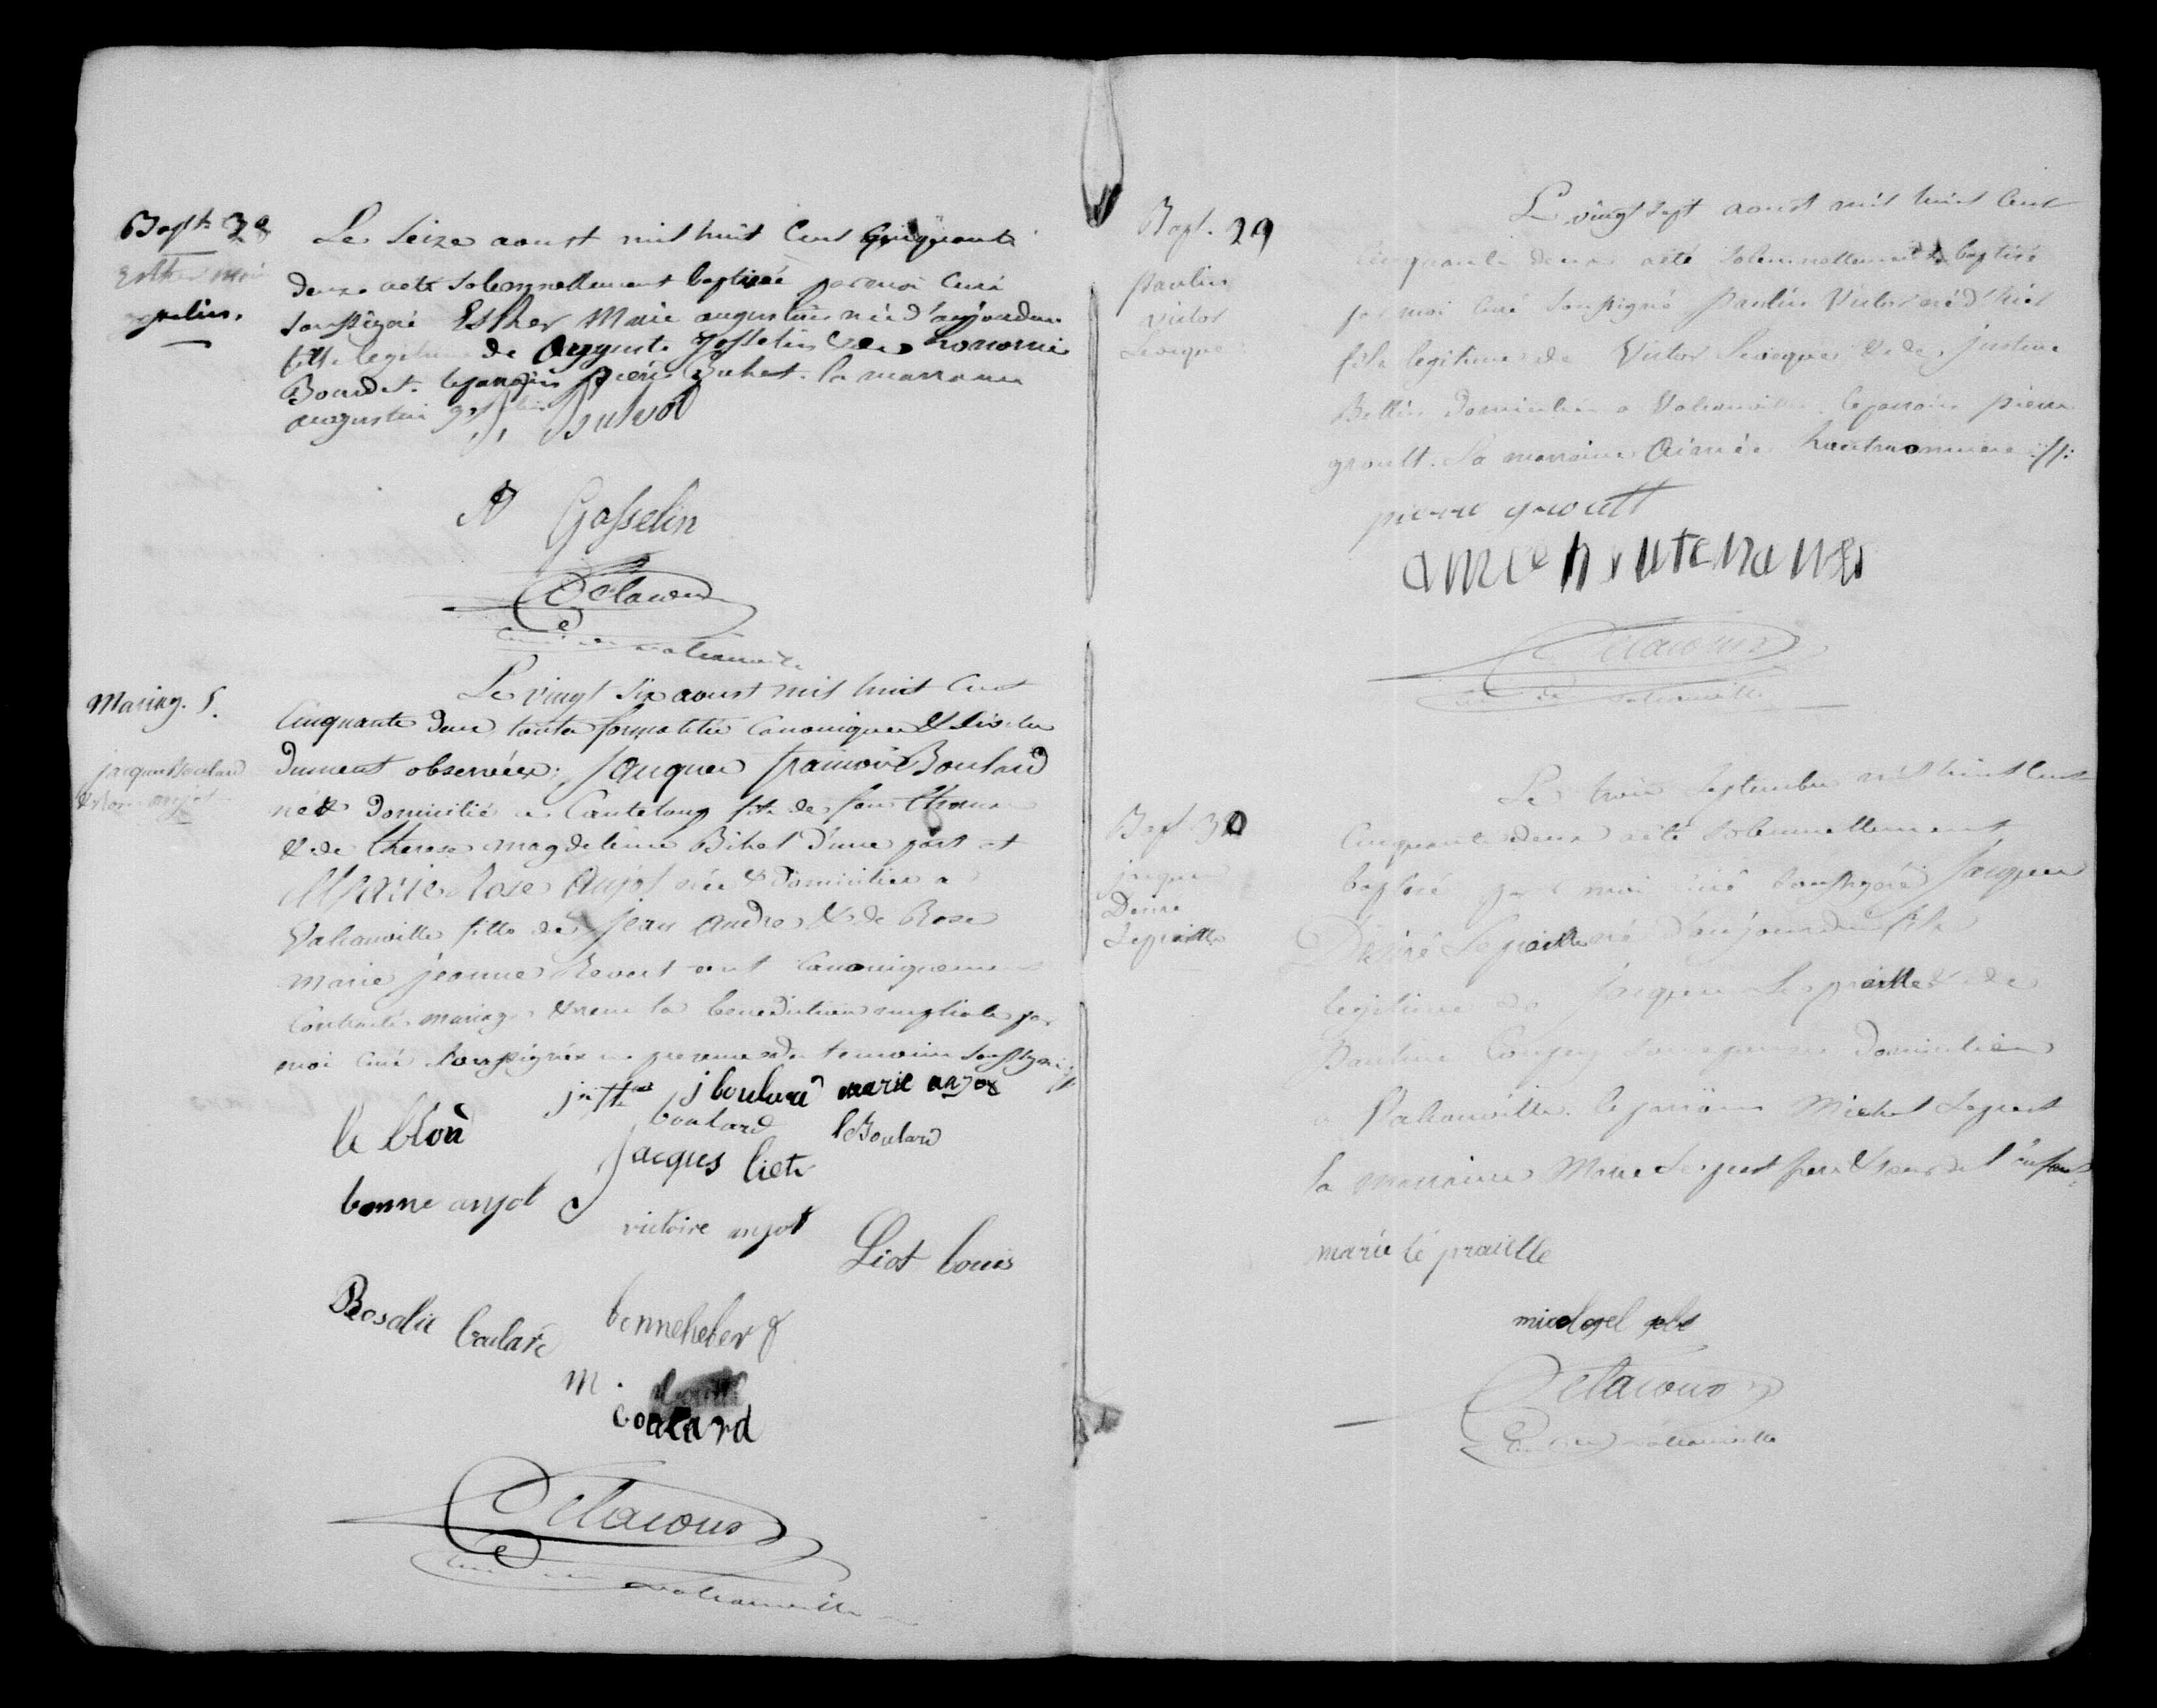 Bapt. 28
Esther Marie
gosselin.
Le Seize aoust mil huit Cent Cinquante
deux a été Solennellement baptisée par moi Curé
Soussigné Esther Marie augustine née d'aujourdhui
fille legitime de Auguste Gosselin & de honorine
Bourdet. le parrain pierre Buhot. la marraine
augustine gosselin
P. Buhot
A Gosselin
Delacour
Curé de valcanville
Mariag. 5.
jacques Boulard
& Rose anjot
Le vingt Six aoust mil huit Cent
Cinquante deux toutes formalités Canoniques & Civiles
dument observées; Jacques francois Boulard
né & domicilié a Canteloup fils de feu thomas
& de therese magdeleine Bihel d'une part et
Marie Rose Anjot née & domiciliée a
Valcanville fille de jean andre & de Rose
marie jeanne Revert ont Canoniquement
Contracté mariage & reçu la benediction nuptiale par
moi Curé Soussigné en presence des temoins Soussignés
j boulard marie anjot
le blon
boulard
l Boulard
jacques liot
bonne anjot
victoire anjot
Liot louis
Rosalie boulard
m.
boulard
Delacour
Curé de valcanville
Bapt. 29
paulin
victor
Leveque
Le vingt Sept aoust mil huit Cent
Cinquante deux a été Solennellement baptisé
par moi Curé Soussigné paulin Victor né d'hier
fils legitime de Victor Leveque & de justine
Bellin domiciliés a Valcanville. le parrain pierre
groult. La marraine Aimée hautemaniere
pierre groult
Delacour
Curé de valcanville
Bapt. 30
jacques
Desiré
Lepraille
Le trois Septembre mil huit Cent
Cinquante deux a été Solennellement
baptisé par moi Curé Soussigné Jacques
Désiré Lepraille né d'aujourdhui fils
legitime de Jacques Lepraille & de
pauline domiciliés
a Valcanville. le parrain Michel
la marraine Marie frere & soeur de l'enfant
marie le praille
Delacour
Curé de valcanville